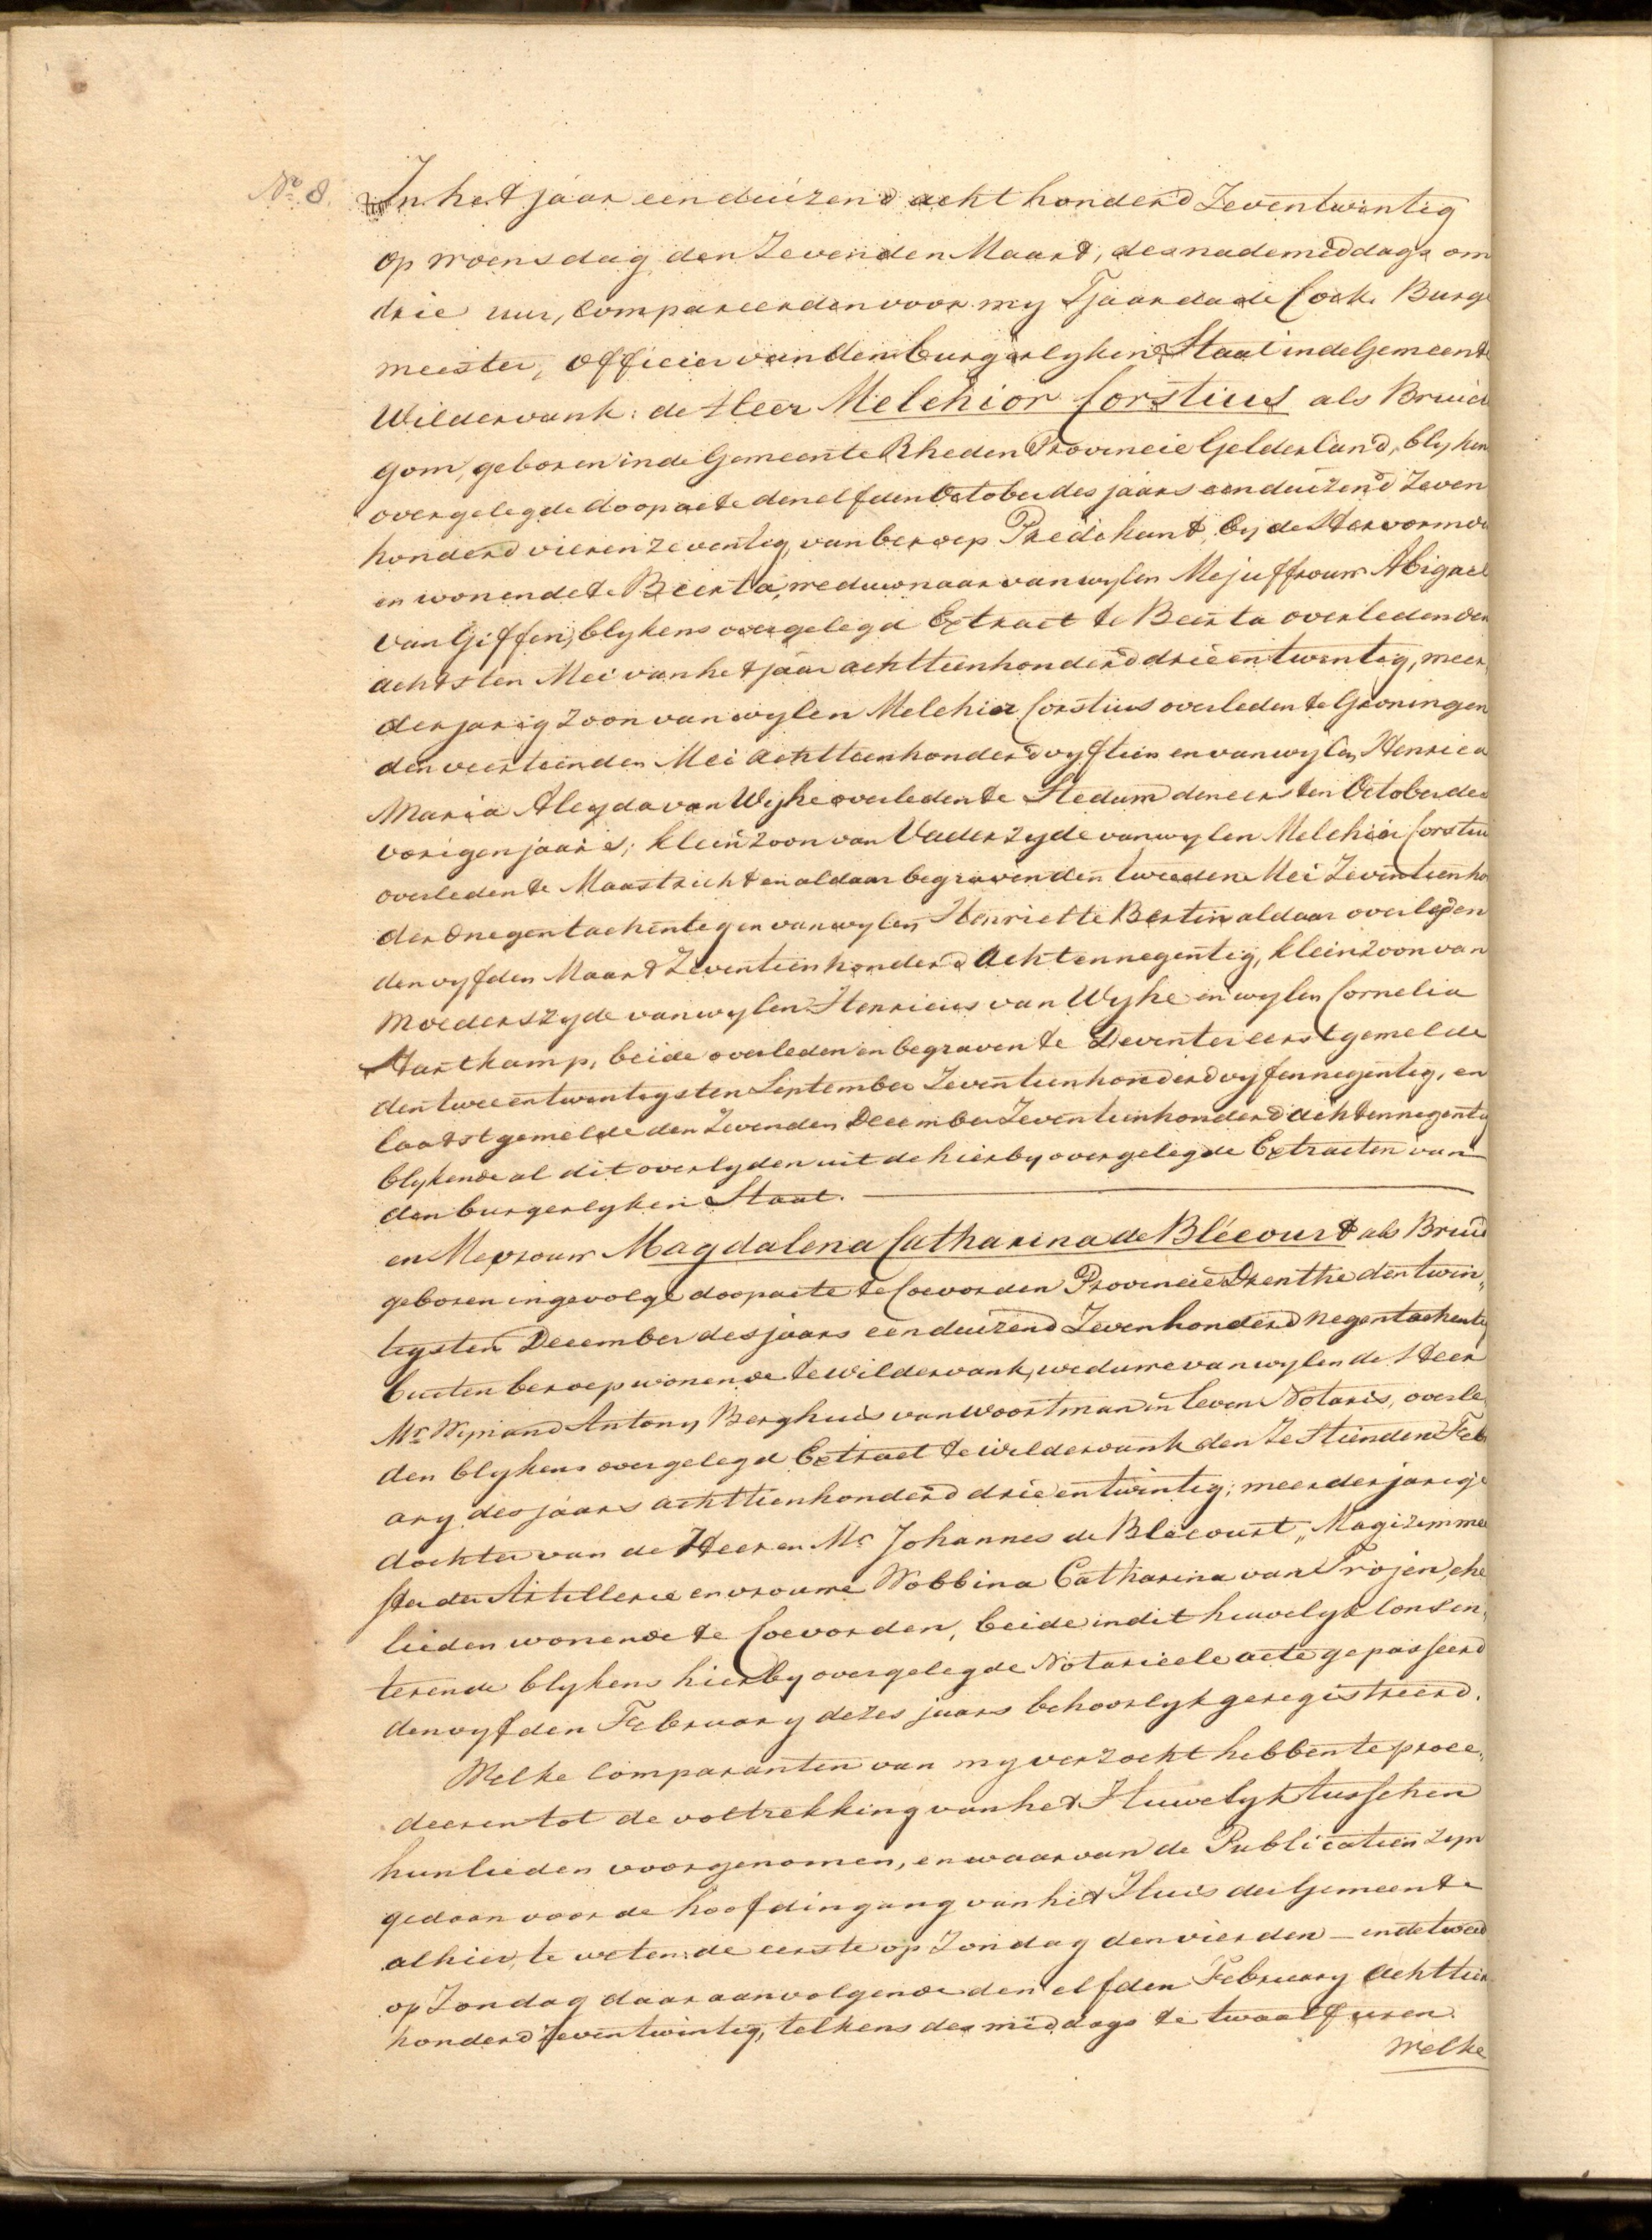 No. 8. In het jaar een duizend acht honderd Zeventwintig
op woensdag den Zevenden Maart, des nademiddags om
drie uur, compareerden voor my Tjaarda de Cock Burge
meester, officier van den burgerlyken Staat in de Gemeente
Wildervank: de Heer Melchior Corstius als Bruide
gom, geboren in de Gemeente Rheden Provincie Gelderland, blyken
overgelegde doopacte den elfden October des jaars een duizend Zeven
honderd vierenzeventig, van beroep Predikant by de Hervormde
en wonende te Beerta, weduwnaar van wylen Mejuffrouw Abigael
van Giffen, blykens overgelegd Extract te Beerta overleden den
achtsten Mei van het jaar achttienhonderd drieentwintig, meer,
derjarig zoon van wylen Melchior Corstius overleden te Groningen
den veertienden Mei achttienhonderd vyftien en van wylen Henrica
Maria Aleyda van Wyhe overleden te Stedum den eersten October des
vorigen jaars; kleinzoon van Vaderzyde van wylen Melchior Corstiu
overleden te Maastricht en aldaar begraven den tweeden Mei Zeventienho
derd negentachentig en van wylen Henriette Bertin aldaar overleden
den vyfden Maart Zeventienhonderd Achtennegentig, kleinzoon van
moederszyde van wylen Henricus van Wyhe en wylen Cornelia
Hartkamp, beide overleden en begraven te Deventer eerstgemelde
den tweeentwintigsten September Zeventienhonderd vyfennegentig, en
laatstgemelde den Zevenden December Zeventienhonderd achtennegentig
blykende al dit overlyden uit de hierby overgelegde Extracten van
den burgerlyken Staat.
en Mevrouw Magdalena Catharina de Blécourt als Bruid
geboren ingevolge doopacte te Coevorden Provincie Drenthe den twin,
tigsten December des jaars eenduizend Zevenhonderd negentachentig
buiten beroep wonende te Wildervank, weduwe van wylen de Heer
Mr. Wynand Antony Berghuis van Woortman in leven Notaris, overle,
den blykens overgelegd Extract te Wildervank den Zestienden Feb
ary des jaars achttienhonderd drieentwintig; meerderjarige
dochter van de Heer en Mr Johannes de Blécourt, Magizynmee
ster der Artillerie en vrouwe Wobbina Catharina van Trojen, ehe
lieden wonende te Coevorden, beide in dit huwelyk consen,
terende blykens hierby overgelegde Notarieele acte gepasseerd
den vyfden February dezes jaars behoorlyk geregistreerd.
Welke comparanten van my verzocht hebben te proce,
deeren tot de voltrekking van het Huwelyk tusschen
hunlieden voorgenomen, en waarvan de Publicatien zyn
gedaan voor de hoofdingang van het Huis der Gemeente
alhier, te weten: de eerste op Zondag den vierden – en de tweed
op Zondag daaraanvolgende den elfden February Achttien
honderd Zeventwintig, telkens des middags te twaalf uren.
Welke